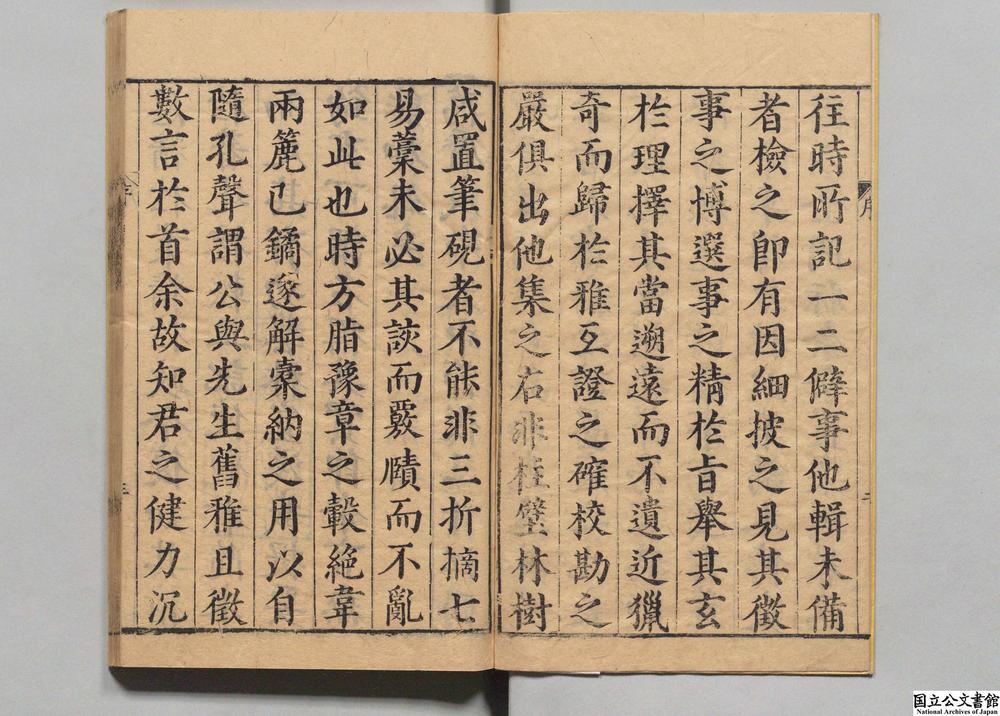 往時所記一二僻事他輯未備
者檢之卽有因細披之見其徵
事之博選事之精於旨舉其玄
於理擇其當遡遠而不遺近獵
奇而歸於雅互證之確校勘之
嚴俱出他集之右非柱壁林樹
咸置筆硯者不能非三折摘七
易藁未必其詼而覈賾而不亂
如此也時方脂豫章之轂絶韋
兩簏已鐍遂解橐納之用以自
隨孔聲謂公與先生舊雅且徵
數言於首余故知君之健力沉
序
二
三
国立公文書館
National Archives of Japan